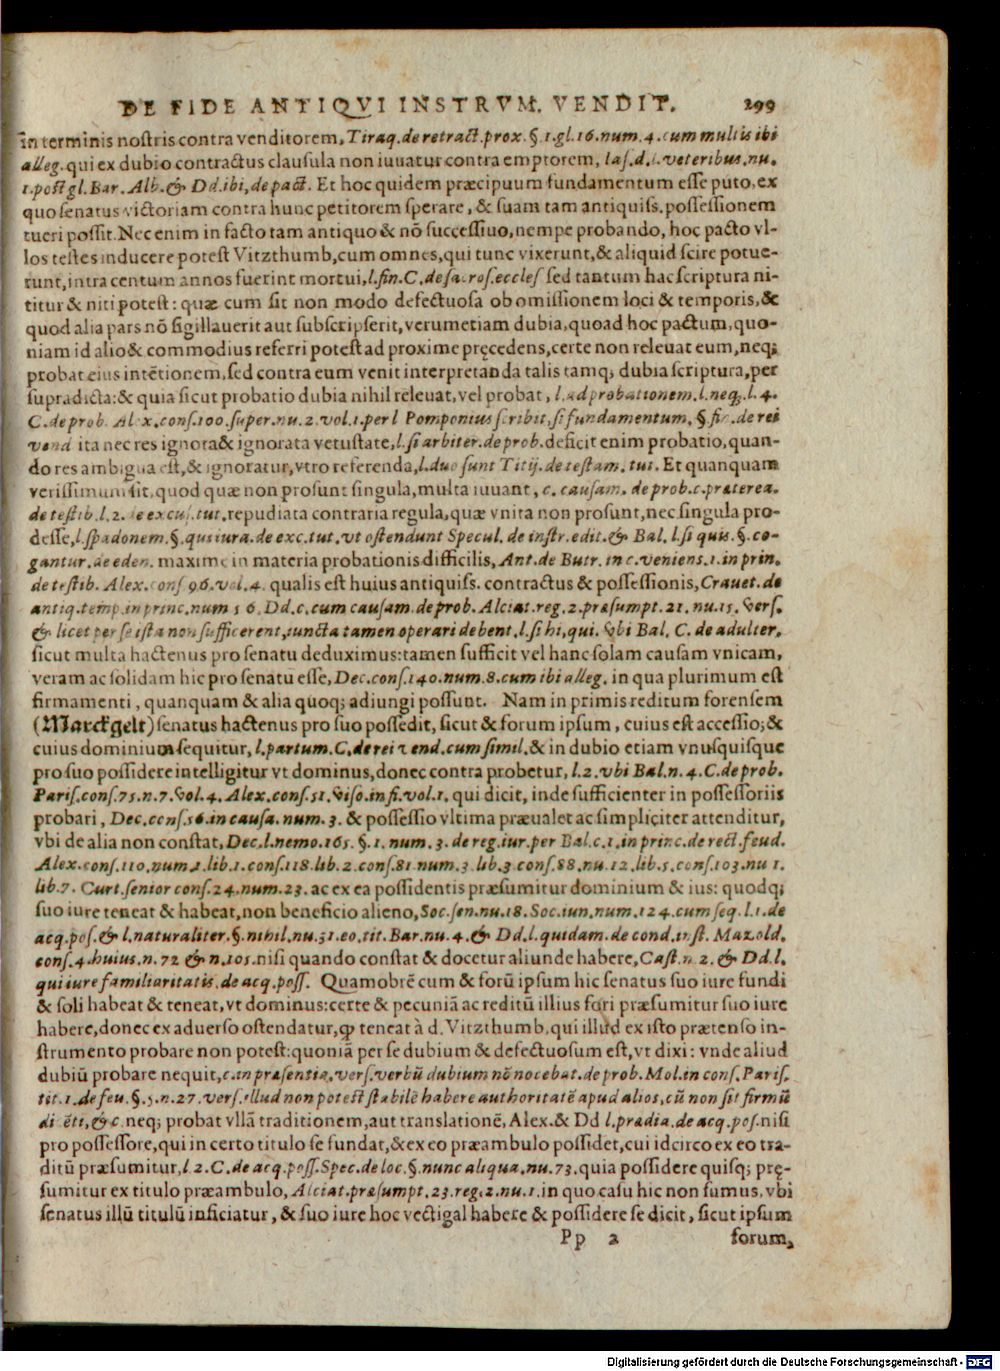 DE FIDE ANTIQVI INSTRVM. VENDIT. 299
in terminis nostris contra venditorem, Tiraq. de retract. prox. §. 1. gl. 16. num. 4. cum multis ibi
alleg. qui ex dubio contractus clausula non iuuatur contra emptorem, Ias. d. l. veteribus. nu.
1. post gl. Bar. Alb. & Dd. ibi, de pact. Et hoc quidem præcipuum fundamentum esse puto, ex
quo senatus victoriam contra hunc petitorem sperare, & suam tam antiquiss. possessionem
tueri possit. Nec enim in facto tam antiquo & nō successiuo, nempe probando, hoc pacto vl-
los testes inducere potest Vitzthumb, cum omnes, qui tunc vixerunt, & aliquid scire potue-
runt, intra centum annos fuerint mortui, l. fin. C. de sacros. eccles sed tantum hac scriptura ni-
titur & niti potest: quæ cum sit non modo defectuosa ob omissionem loci & temporis, &
quod alia pars nō sigillauerit aut subscripserit, verumetiam dubia, quoad hoc pactum, quo-
niam id alio & commodius referri potest ad proxime pręcedens, certe non releuat eum, neq;
probat eius intētionem, sed contra eum venit interpretanda talis tamq; dubia scriptura, per
supradicta: & quia sicut probatio dubia nihil releuat, vel probat, l. ad probationem. l. neq. l. 4.
C. de prob. Alex. cons. 100. super. nu. 2. vol. 1. per l Pomponius scribit, si fundamentum. §. fin. de rei
vend ita nec res ignora & ignorata vetustate, l. si arbiter. de prob. deficit enim probatio, quan-
do res ambigua est, & ignoratur, vtro referenda, l. duo sunt Titij. de testam. tut. Et quanquam
verissimum sit, quod quæ non prosunt singula, multa iuuant, c. causam. de prob. c. præterea.
de testib. l. 2. de excus. tut. repudiata contraria regula, quæ vnita non prosunt, nec singula pro-
desse, l. spadonem. §. qui iura. de exc. tut. vt ostendunt Specul. de instr. edit. & Bal. l. si quis. §. co-
gantur. de eden. maxime in materia probationis difficilis, Ant. de Butr. in c. veniens. 1. in prin.
de testib. Alex. cons 96. vol. 4. qualis est huius antiquiss. contractus & possessionis, Crauet. de
antiq. temp. in princ. num 56. Dd. c. cum causam. de prob. Alciat. reg. 2. præsumpt. 21. nu. 15. vers.
& licet per se ista non sufficerent, iuncta tamen operari debent. l. si hi, qui. vbi Bal. C. de adulter.
sicut multa hactenus pro senatu deduximus: tamen sufficit vel hanc solam causam vnicam,
veram ac solidam hic pro senatu esse, Dec. cons. 140. num. 8. cum ibi alleg. in qua plurimum est
firmamenti, quanquam & alia quoq; adiungi possunt. Nam in primis reditum forensem
(Marckgelt) senatus hactenus pro suo possedit, sicut & forum ipsum, cuius est accessio; &
cuius dominium sequitur, l. partum. C. de rei vend. cum simil. & in dubio etiam vnusquisque
pro suo possidere intelligitur vt dominus, donec contra probetur, l. 2. vbi Bal. n. 4. C. de prob.
Paris. cons. 75. n. 7. vol. 4. Alex. cons. 51. viso. in fi. vol. 1. qui dicit, inde sufficienter in possessoriis
probari, Dec. cons. 56. in causa. num. 3. & possessio vltima præualet ac simpliciter attenditur,
vbi de alia non constat, Dec. l. nemo. 165. §. 1. num. 3. de reg. iur. per Bal. c. 1. in princ. de rect. feud.
Alex. cons. 110. num. 1. lib. 1. cons. 118. lib. 2. cons. 81 num. 3 lib. 3 cons. 88. nu. 12. lib. 5. cons. 103. nu 1.
lib. 7. Curt. senior cons. 24. num. 23. ac ex ea possidentis præsumitur dominium & ius: quodq;
suo iure teneat & habeat, non beneficio alieno, Soc. sen. nu. 18. Soc. iun. num. 124. cum seq. l. 1. de
acq. pos. & l. naturaliter. §. nihil. nu. 51. eo. tit. Bar. nu. 4. & Dd. l. quidam. de cond. inst. Mazold.
cons. 4. huius. n. 72 & n. 105. nisi quando constat & docetur aliunde habere, Cast. n. 2. & Dd. l.
qui iure familiaritatis. de acq. poss. Quamobrē cum & forū ipsum hic senatus suo iure fundi
& soli habeat & teneat, vt dominus: certe & pecuniā ac reditū illius fori præsumitur suo iure
habere, donec ex aduerso ostendatur, ꝙ teneat à d. Vitzthumb, qui illud ex isto prætenso in-
strumento probare non potest: quoniā per se dubium & defectuosum est, vt dixi: vnde aliud
dubiū probare nequit, c. in præsentia. vers. verbū dubium nō nocebat. de prob. Mol. in cons. Paris.
tit. 1. de feu. §. 5. n. 27. vers. illud non potest stabilē habere authoritatē apud alios, cū non sit firmū
di ēti, & c. neq; probat vllā traditionem, aut translationē, Alex. & Dd l. prædia. de acq. pos. nisi
pro possessore, qui in certo titulo se fundat, & ex eo præambulo possidet, cui idcirco ex eo tra-
ditū præsumitur, l 2. C. de acq. poss. Spec. de loc. §. nunc aliqua. nu. 73. quia possidere quisq; prę-
sumitur ex titulo præambulo, Alciat. præsumpt. 23. reg. 2. nu. 1. in quo casu hic non sumus, vbi
senatus illū titulū inficiatur, & suo iure hoc vectigal habere & possidere se dicit, sicut ipsum
Pp 2 forum,
Digitalisierung gefördert durch die Deutsche Forschungsgemeinschaft - DFG